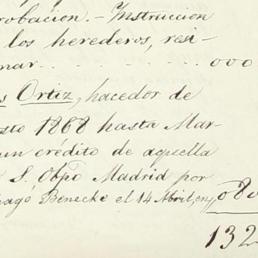 robacion.- Instruccion
los herederos, resi-
nar . . . . . 000
s Ortiz, hacedor de
sto 1868 hasta Mar-
un crédito de aquella
S. Obpo Madrid por
agó Benecke el 14 Abril, en, 080
132